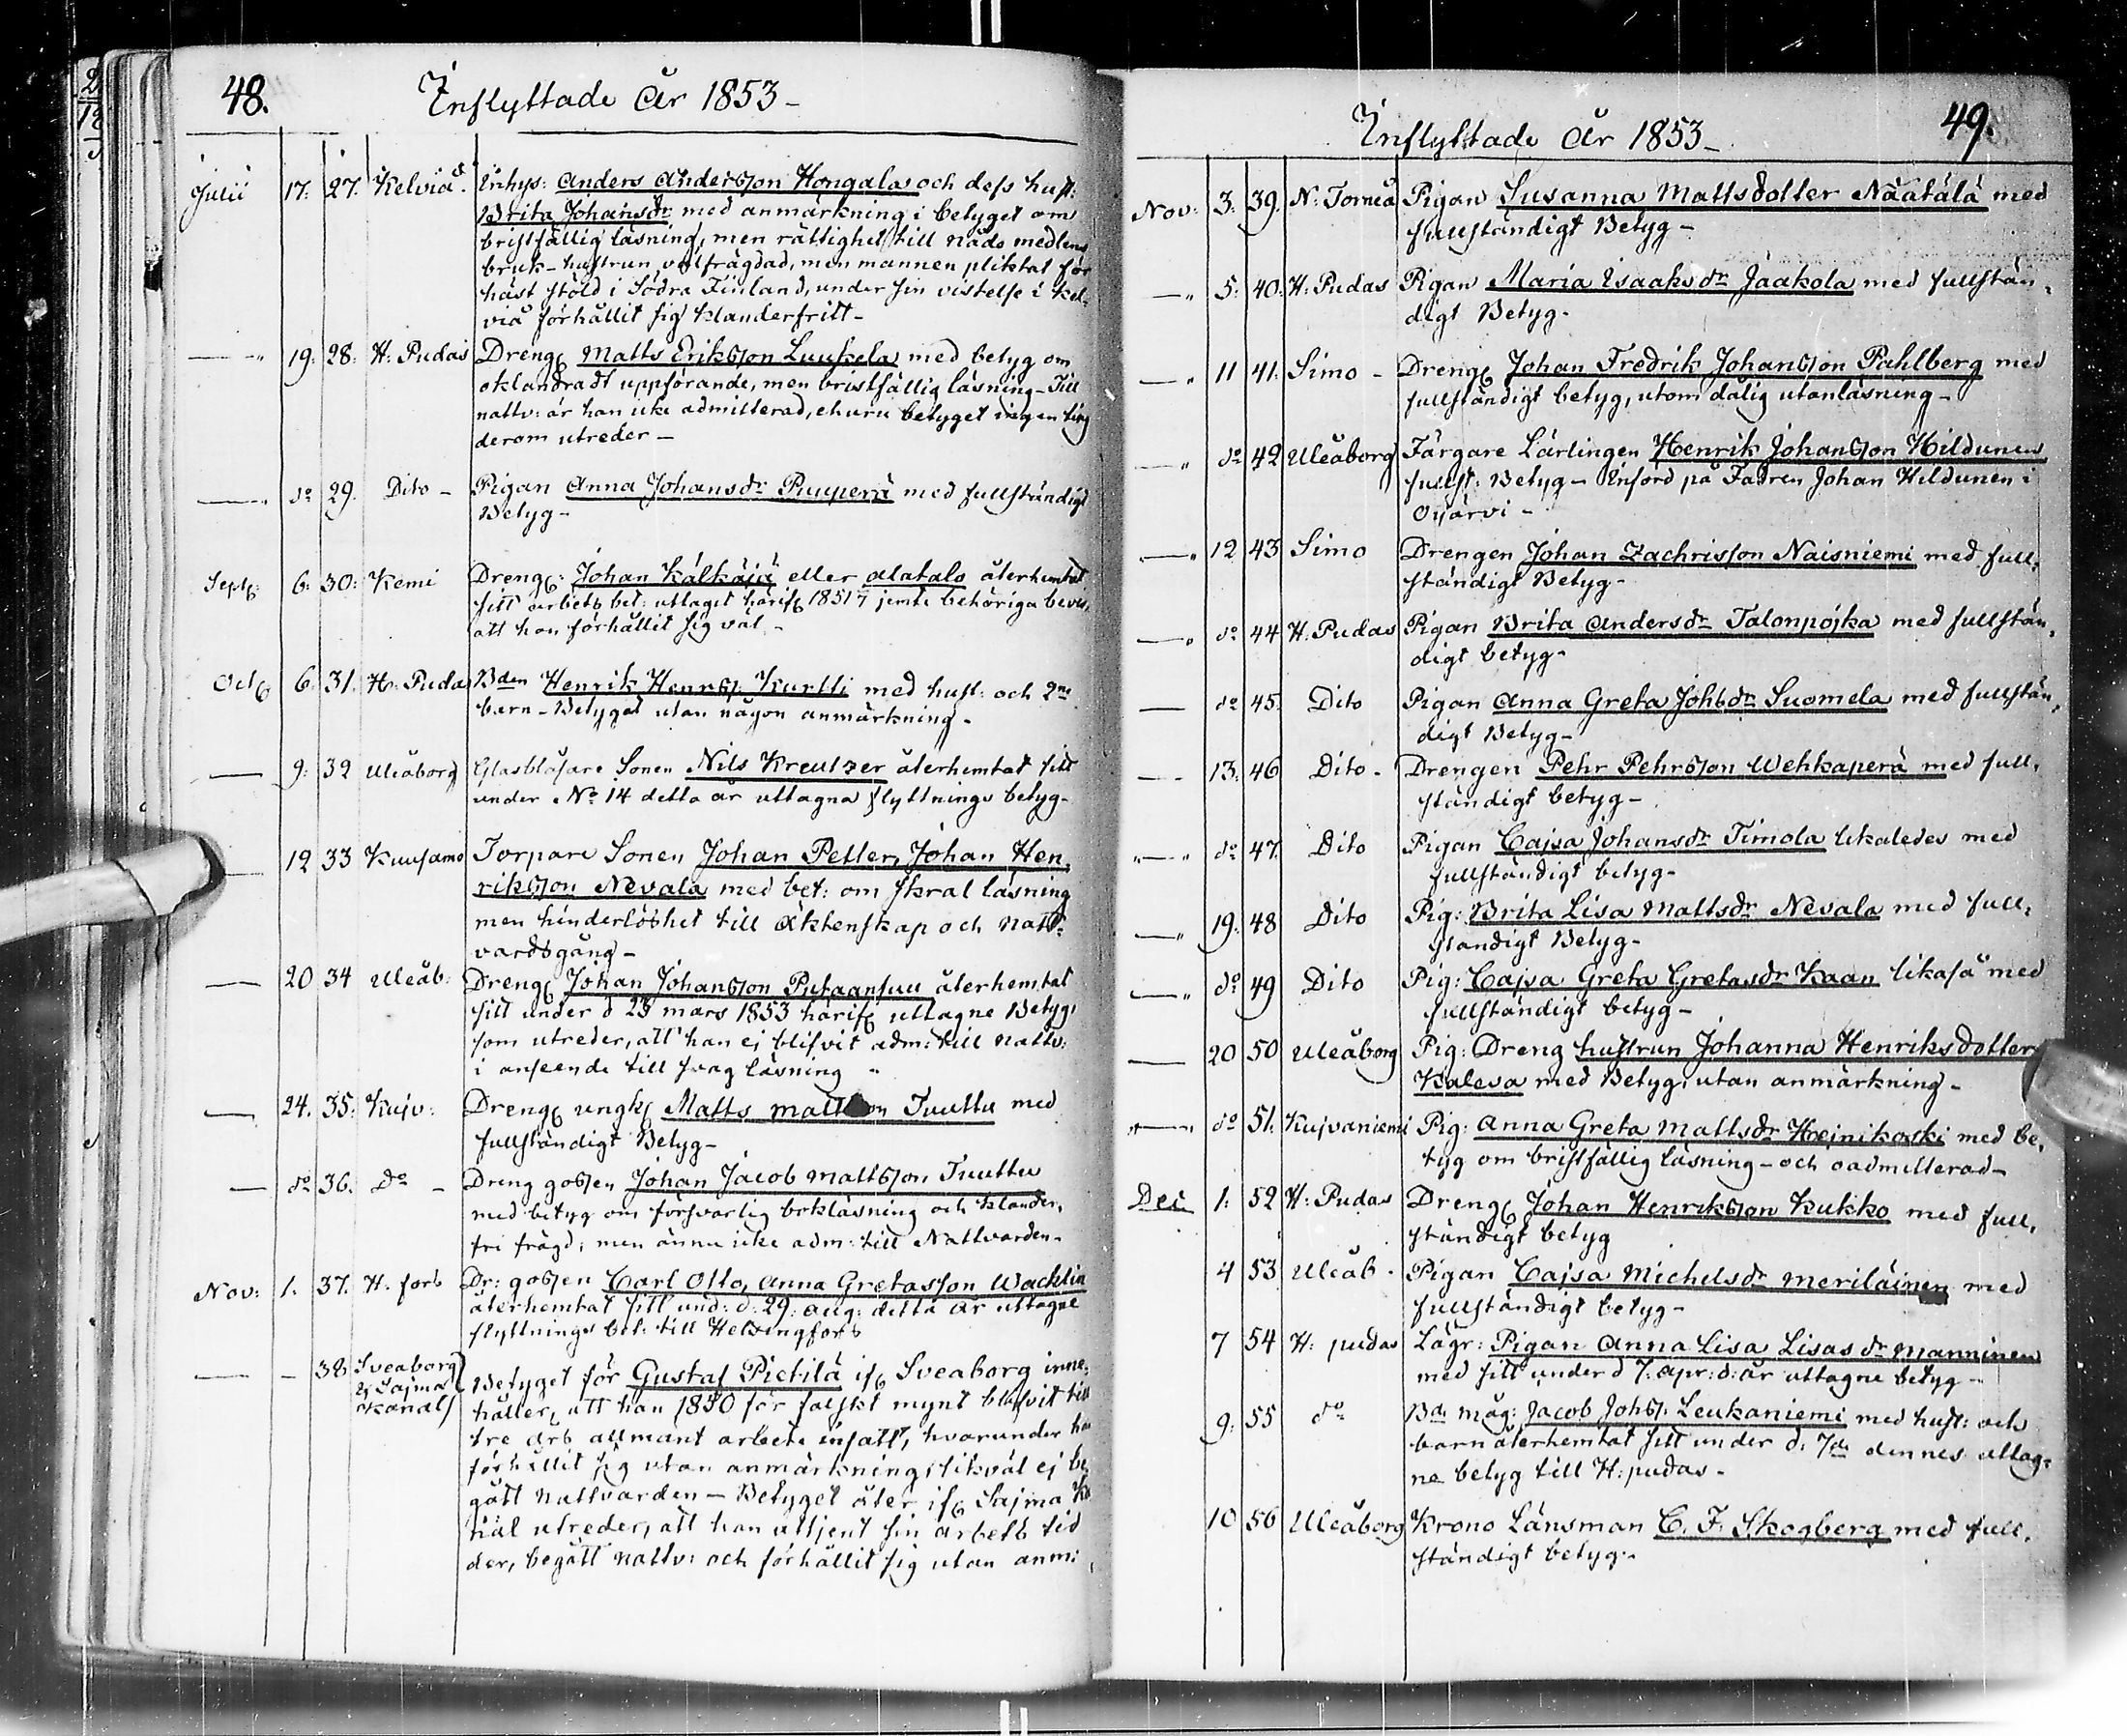 48.
Inflyttade År 1853 -
Julii 17. 27. Kelviå. Inhys: Anders Andersson Hongala och dess hust:
Brita Johansdr med anmärkning i betyget om
bristfällig läsning, men rättighet till nåde medlens
bruk - hustrun välfrägdad, men mannen pliktat för
häst stöld i Södra Finland, under sin vistelse i Kel-
viå förhållit sig klanderfritt -
—„ 19. 28. H: Pudas Dreng Matts Eriksson Luukela med betyg om
oklandradt uppförande, men bristfällig läsning - Till
nattv: är han icke admitterad, ehuru betyget ingen ting
derom utreder -
—„ do 29. Dito - Pigan Anna Johansdr Puuperä med fullständigt
Betyg -
Sept: 6. 30. Kemi Dreng: Johan Kälkäjä eller Alatalo återhemtat
sitt arbets bet: uttaget härifr 1851 jemte behöriga bevis,
att han förhållit sig väl -
Oct 6. 31. H: Pudas Bden Henrik Henrss. Kurtti med hust: och 2ne
barn - Betyget utan någon anmärkning -
— 9. 32 Uleåborg Glasblåsare Sonen Nils Kreutzer återhemtat sitt
under No 14 detta år uttagna flyttnings betyg -
— 12 33 Kuusamo Torpare Sonen Johan Petter, Johan Hen-
riksson Nevala med bet: om skral läsning
men hinderlöshet till äktenskap och natt-
vardsgång -
— 20 34 Uleåb: Dreng Johan Johansson Putaansuu återhemtat
sitt under d 23 mars 1853 härifr uttagne Betyg,
som utreder, att han ej blifvit adm: till nattv:
i anseende till svag läsning -
— 24. 35. Kujv: Dreng ungk Matts mattsson Tuuttu med
fullständigt Betyg -
— do 36. do - Dreng gossen Johan Jacob mattsson Tuuttu
med betyg om försvarlig bokläsning och klander,
fri frägd, men ännu icke adm: till Nattvarden -
Nov: 1. 37. H. fors Dr: gossen Carl Otto, Anna Gretasson Wacklin
återhemtat sitt und: d: 29: aug: detta år uttagne
flyttnings bet: till Helsingfors
— - 38 Sveaborg
& Sajma
Kanal
Betyget för Gustaf Pietilä ifr Sveaborg inne-
håller, att han 1850 för falskt mynt blifvit till
tre års allmänt arbete insatt, hvarunder han
förhållit sig utan anmärkning, likväl ej be-
gått nattvarden - Betyget åter ifr Sajma Ka
nal utreder, att han uttjent sin arbets tid
der, begått nattv: och förhållit sig utan anm:
49.
Inflyttade År 1853 -
Nov: 3. 39. N: Torneå Pigan Susanna Mattsdotter Näätälä med
fullständigt Betyg -
—„ 5. 40. H: Pudas Pigan Maria Isaaksdr Jaakola med fullstän-
digt Betyg -
—„ 11 41. Simo - Dreng Johan Fredrik Johansson Pahlberg med
fullständigt betyg, utom dålig utanläsning -
—„ do 42 Uleåborg Färgare Lärlingen Henrik Johansson Hildunen
fullst: Betyg - Införd på Fadren Johan Hildunen i
Oijärvi -
—„ 12 43 Simo Drengen Johan Zachrisson Naisniemi med full-
ständigt Betyg -
—„ do 44 H: Pudas Pigan Brita Andersdr Talonpojka med fullstän-
digt betyg -
— do 45. Dito Pigan Anna Greta Johsdr Suomela med fullstän-
digt Betyg -
— 13. 46 Dito - Drengen Pehr Pehrsson Wehkaperä med full-
ständigt betyg -
—„ do 47. Dito Pigan Cajsa Johansdr Timola likaledes med
fullständigt betyg -
—„ 19. 48 Dito Pig: Brita Lisa Mattsdr Nevala med full-
ständigt Betyg -
—„ do 49 Dito Pig: Cajsa Greta Gretasdr Kaan likaså med
fullständigt betyg -
— 20 50 Uleåborg Pig: Dreng hustrun Johanna Henriksdotter
Kaleva med Betyg, utan anmärkning -
— do 51. Kujvaniemi Pig: Anna Greta Mattsdr Heinikoski med be-
tyg om bristfällig läsning - och oadmitterad -
Dec: 1. 52 H: Pudas Dreng Johan Henriksson Kukko med full-
ständigt betyg
4 53 Uleåb - Pigan Cajsa Michelsdr meriläinen med
fullständigt betyg -
7 54 H: pudas Lägr: Pigan Anna Lisa Lisasdr manninen
med sitt under d 7. Apr: d: år uttagne betyg -
9. 55 do Bd: måg: Jacob Johss. Leukaniemi med hust: och
barn återhemtat sitt under d. 7de dennes uttag-
ne betyg till H: pudas -
10 56 Uleåborg Krono Länsman C. F. Skogberg med full-
ständigt betyg -